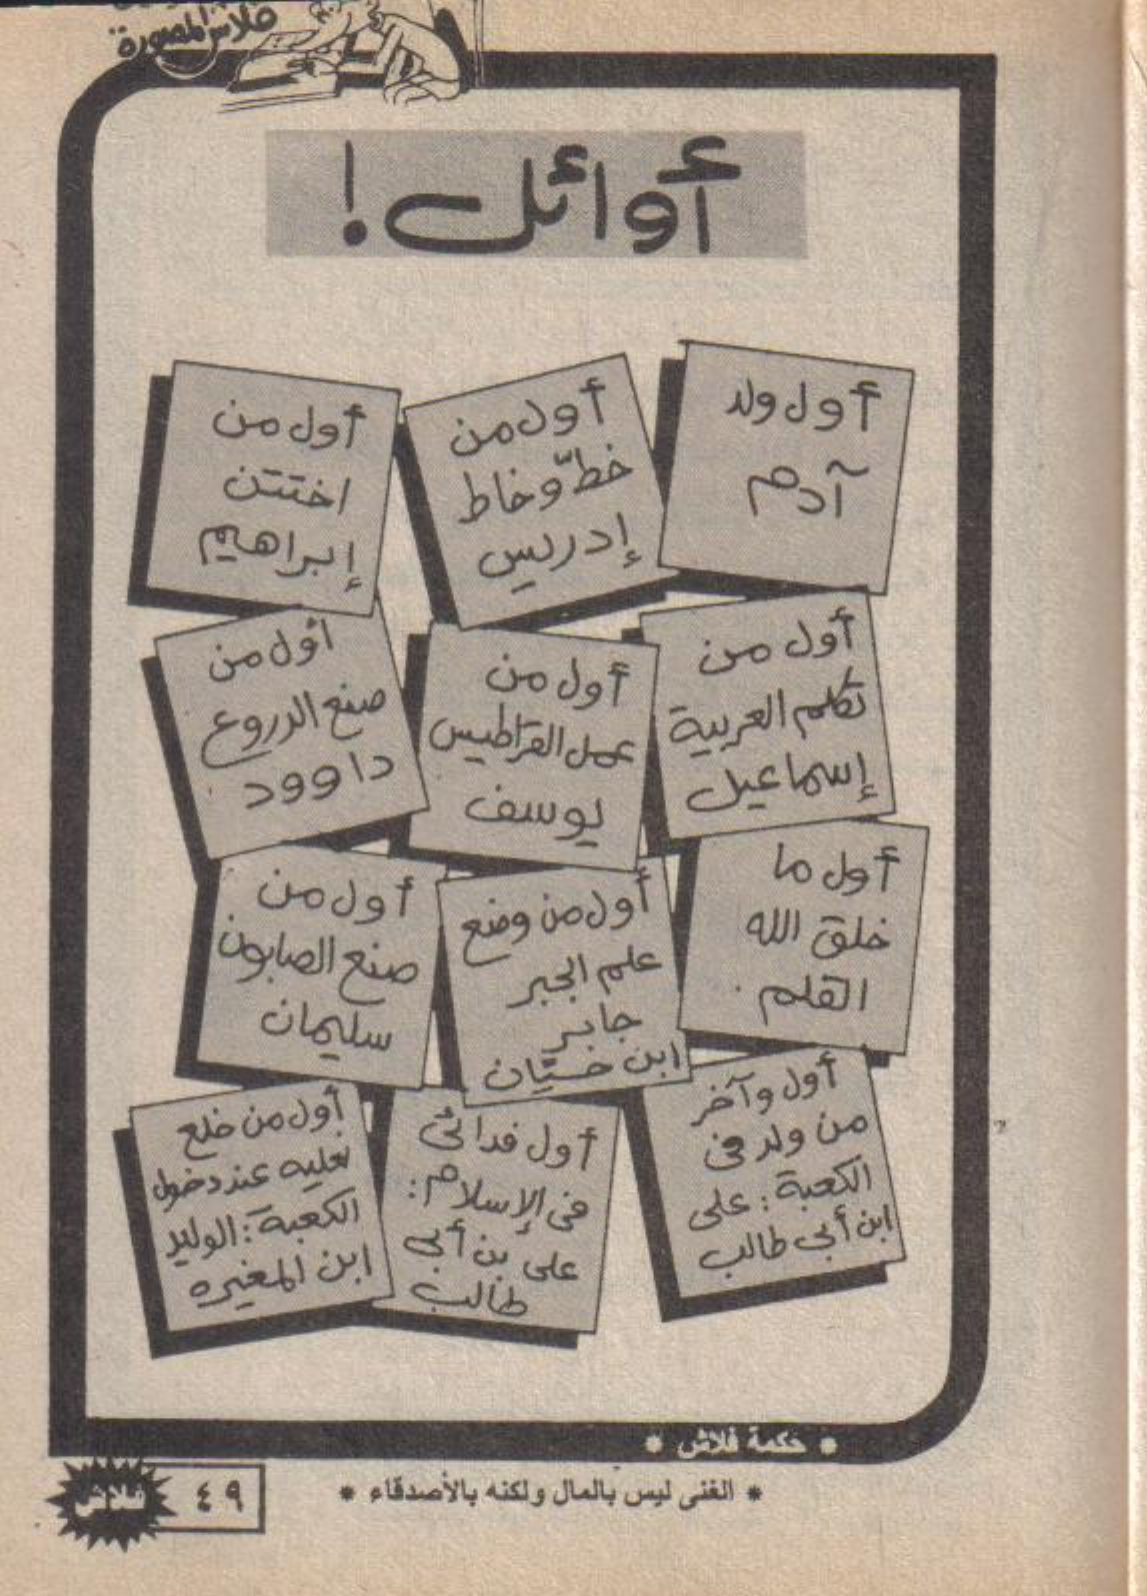 فلاش المصورة
أوائل!
أول ولد
آدم
أول من
خطّ وخاط
إدريس
أول من
اختتن
إبراهيم
أول من
تكلم العربية
إسماعيل
أول من
عمل القراطيس
يوسف
أول من
صنع الدروع
داوود
أول ما
خلق الله
القلم
أول من وضع
علم الجبر
جابر
ابن حيّان
أول من
صنع الصابون
سليمان
أول وآخر
من ولد فى
الكعبة: على
ابن أبى طالب
أول فدائى
فى الإسلام:
على بن أبى
طالب
أول من خلع
نعليه عند دخول
الكعبة: الوليد
ابن المغيره
* حكمة فلاش *
* الغنى ليس بالمال ولكنه بالأصدقاء *
٤٩
فلاش